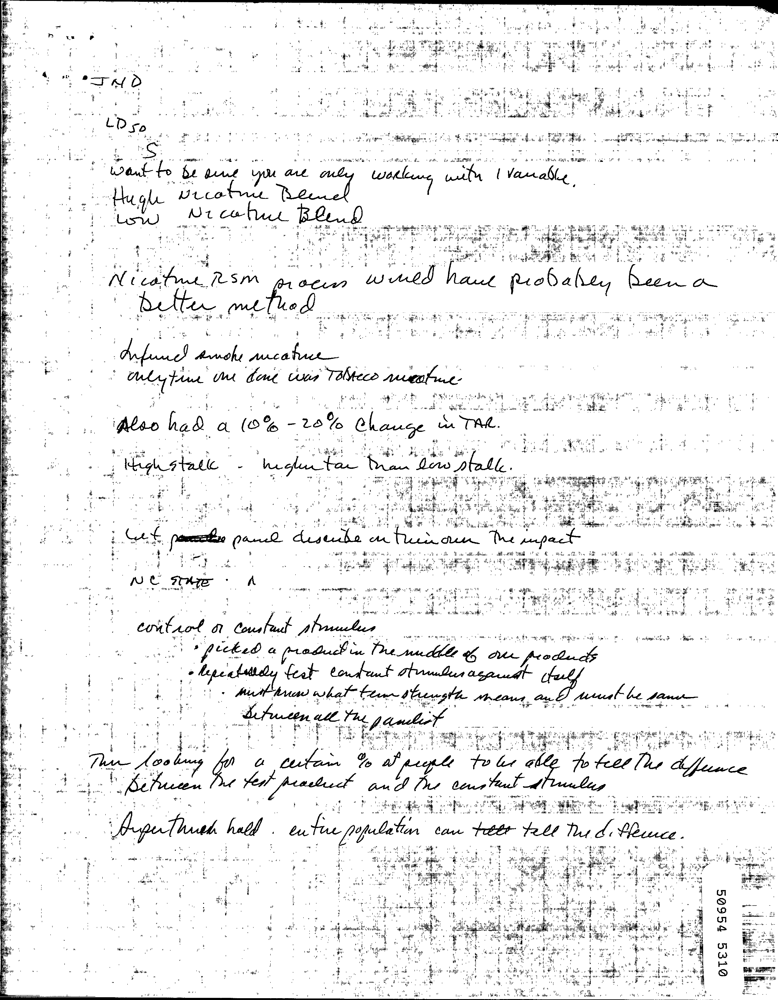 • JND
LD50
S
want to be sure you are only working with 1 variable.
High Nicotine Blend
Low Nicotine Blend
Nicotine RSM process would have probabley been a
better method
smoke nicotine
only time one done was Tobacco nicotine
Also had a 10% - 20% change in TAR.
High stalk - higher tar than low stalk.
Let panel describe on their own the impact
NC STATE
control or constant stimulus
• picked a product in the middle of our products
• Repeatedly test constant stimulus against itself
• must know what term strength means and must be same
between all the panelist
Then looking for a certain % of people to be able to tell the diffuence
between the test product and the constant stimulus
Super thresh hold. entire population can tell the difference.
50954 5310